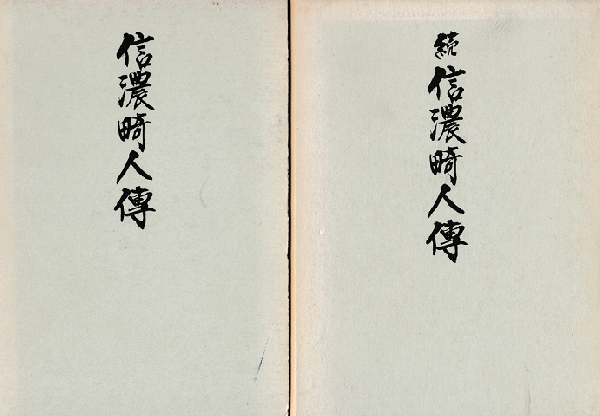 信濃畸人傳
続信濃畸人傳